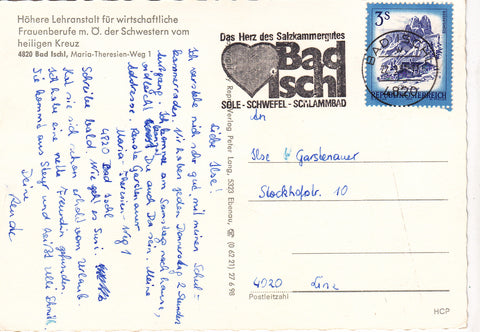 Höhere Lehranstalt für wirtschaftliche
Frauenberufe m. Ö. der Schwestern vom
heiligen Kreuz
4820 Bad Ischl, Maria-Theresien-Weg 1
Liebe Ilse!
Ich verstehe mich sehr gut mit meinen Schul-
kameraden. Wir haben jeden Donnerstag 2 Stunden
Ausgang. Ich komme am Samstag nach hause,
vielleicht kannst Du auch da sein. Meine
Addresse: Renate Garstenauer
Maria-Theresien-Weg 1
4820 Bad Ischl
Schreibe bald. Wie geht es Susi.
Hat sie sich schon erholt vom Urlaub.
Ich habe eine nette Freundin gefunden.
Sie kommt aus Steyr und heißt
Deine
Renate
Verlag Peter Lang, 5323 Ebenau, ☏ (0 62 21) 27 6 98
Das Herz des Salzkammergutes
Bad
Ischl
SOLE - SCHWEFEL - SCHLAMMBAD
BAD ISCHL
4820
3 S
REPUBLIK ÖSTERREICH
An
Ilse Garstenauer
Stockhofstr. 10
4020 Linz
Postleitzahl
HCP